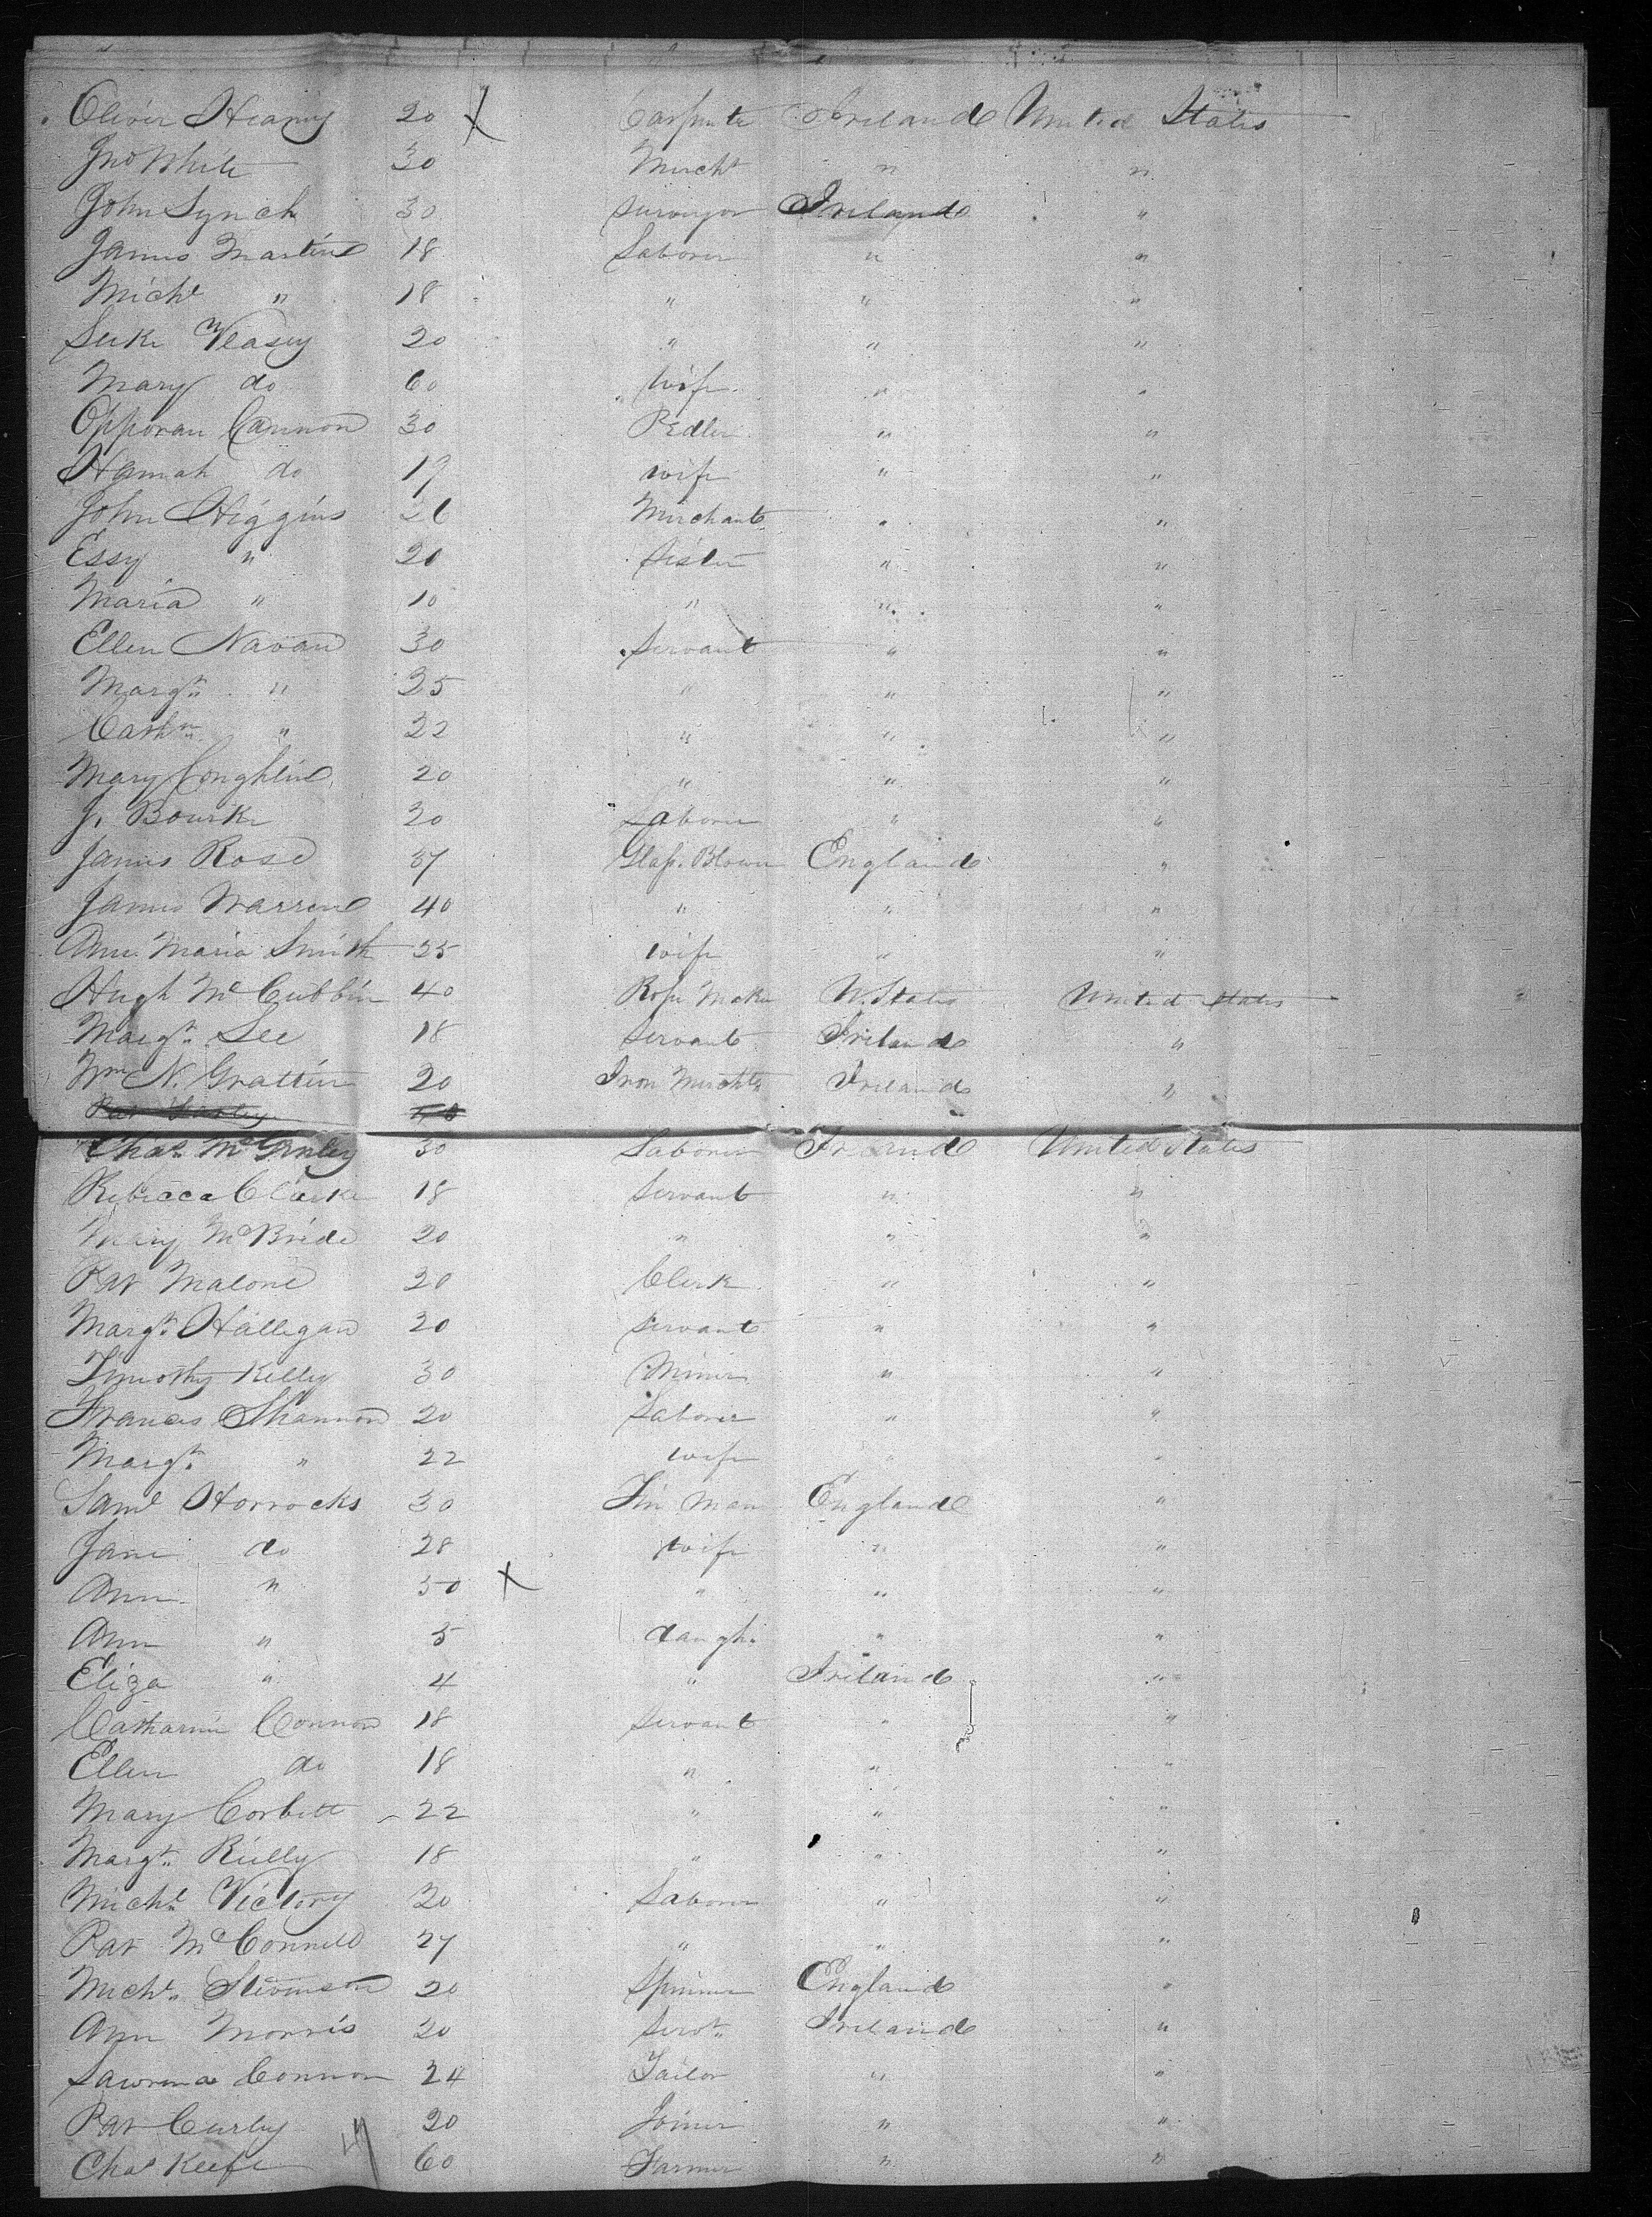 Oliver Heaney 20 X Carpenter Ireland United States
Jno White 30 Mercht " "
John Lynch 30 Surveyor Ireland "
James Martin 18 Laborer " "
Michl " 18 " " "
Luke Veasey 20 " " "
Mary do 60 wife " "
Cannon 30 Pedler " "
Hannah do 19 wife " "
John Higgins 26 Merchant " "
Essy " 20 Sister " "
Maria " 10 " " "
Ellen Navan 30 Servant " "
Margt " 25 " " "
Cathne " 22 " " "
Mary Conghlin 20 " " "
J. Bourke 20 Laborer " "
James Rose 37 Glass Blower England "
James Warren 40 " " "
Ann Maria Smith 25 wife " "
Hugh McCubbin 40 Rope Maker U. States United States
Margt Lee 18 Servant Ireland "
Wm N. Grattin 20 Iron Mercht Ireland "
Chas McGinley 30 Laborer Ireland United States
Rebecca Clarke 18 Servant " "
Mary McBride 20 " " "
Pat Malone 20 Clerk " "
Margt Halligan 20 Servant " "
Timothy Kelley 30 Miner " "
Francis Shannon 20 Laborer " "
Margt " 22 wife " "
Saml Horrocks 30 Tin Man England "
Jane do 28 wife " "
Ann " 50 X " " "
Ann " 5 daugh. " "
Eliza " 4 " Ireland "
Catharine Connon 18 Servant " "
Ellen do 18 " " "
Mary Corbett 22 " " "
Margt Reilly 18 " " "
Michl Victory 20 Laborer " "
Pat McConnell 27 " " "
Michl Stevenson 20 Spinner England "
Ann Morris 20 Servt Ireland "
Lawrence Connon 24 Tailor " "
Pat Curley 20 Joiner " "
Chas Keefe 60 Farmer " "